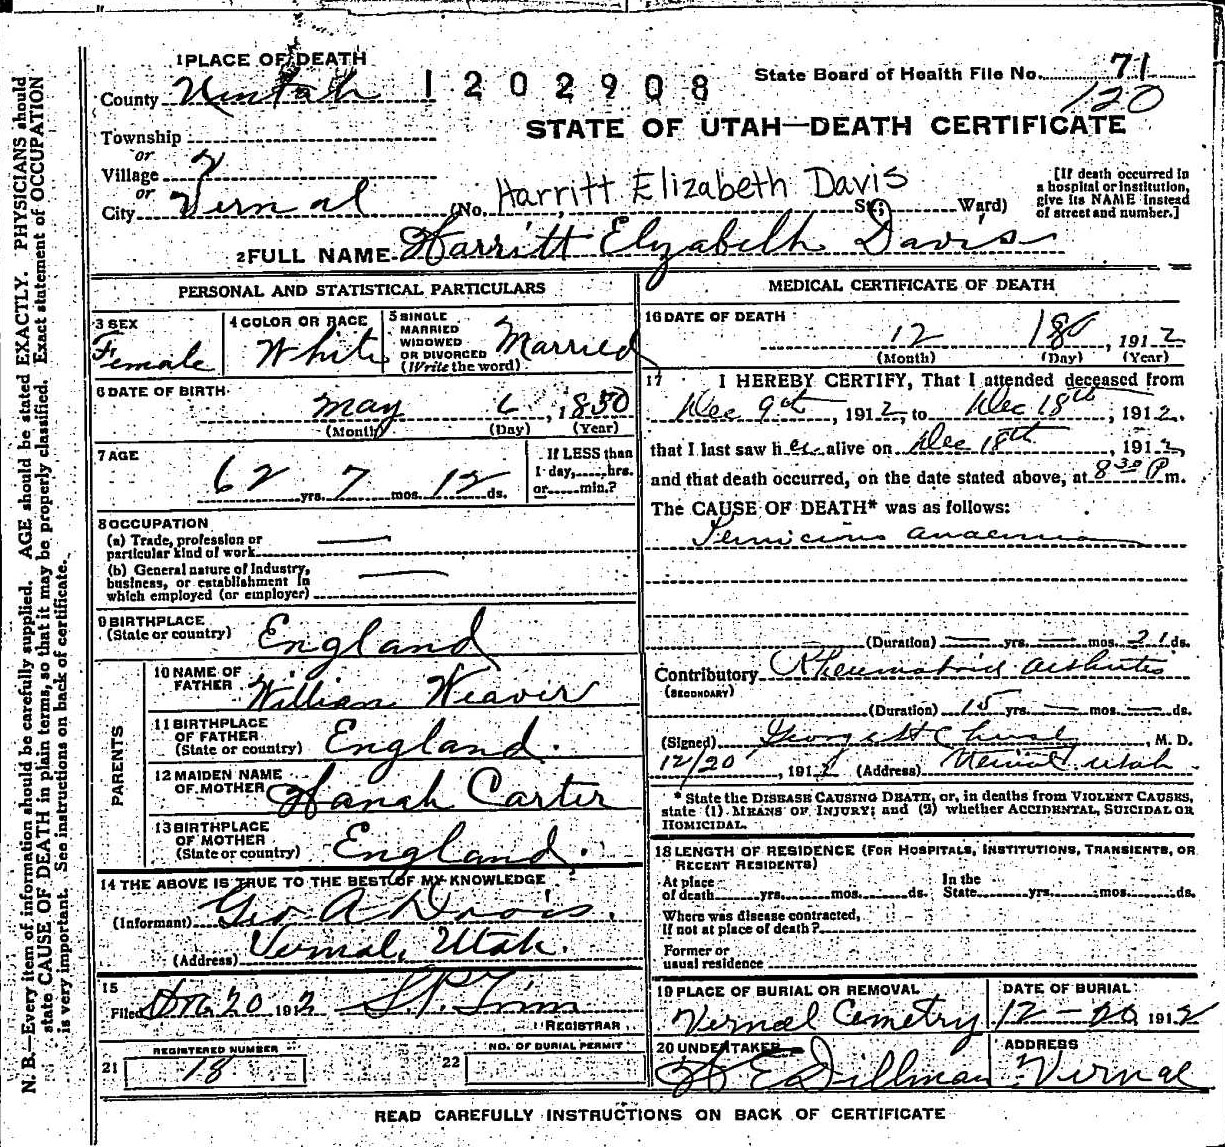 1 PLACE OF DEATH
County Uintah
1202908
State Board of Health File No. 71
120
Township
or
Village
or
City Vernal
STATE OF UTAH—DEATH CERTIFICATE
(No. Harritt Elizabeth Davis St; Ward)
[If death occurred in
a hospital or institution,
give its NAME instead
of street and number.]
2 FULL NAME Harritt Elyzabelh Davis
PERSONAL AND STATISTICAL PARTICULARS
3 SEX
Female
4 COLOR OR RACE
White
5 SINGLE
MARRIED
WIDOWED
OR DIVORCED
(Write the word)
Married
6 DATE OF BIRTH
May 6, 1850
(Month) (Day) (Year)
7 AGE
62 yrs. 7 mos. 12 ds.
If LESS than
1 day, hrs.
or min.?
8 OCCUPATION
(a) Trade, profession or
particular kind of work
(b) General nature of Industry,
business, or establishment in
which employed (or employer)
9 BIRTHPLACE
(State or country) England
PARENTS
10 NAME OF
FATHER William Weaver
11 BIRTHPLACE
OF FATHER
(State or country) England.
12 MAIDEN NAME
OF MOTHER Hanah Carter
13 BIRTHPLACE
OF MOTHER
(State or country) England.
14 THE ABOVE IS TRUE TO THE BEST OF MY KNOWLEDGE
(Informant) Geo A Davis.
(Address) Vernal, Utah.
15
Filed Dec. 20 1912 S.P. Trim
REGISTRAR
REGISTERED NUMBER
21 18
NO. OF BURIAL PERMIT
22
MEDICAL CERTIFICATE OF DEATH
16 DATE OF DEATH
12 18th, 1912
(Month) (Day) (Year)
17 I HEREBY CERTIFY, That I attended deceased from
Dec 9th, 1912, to Dec 18th, 1912.
that I last saw her alive on Dec 18th, 1912,
and that death occurred, on the date stated above, at 8 30 P m.
The CAUSE OF DEATH* was as follows:
Pernicious anaemia
(Duration) yrs. mos. 21 ds.
Contributory Rheumatoid arthritis
(SECONDARY)
(Duration) 15 yrs. mos. ds.
(Signed) , M. D.
12/20, 1912 (Address) Vernal Utah
* State the DISEASE CAUSING DEATH, or, in deaths from VIOLENT CAUSES,
state (1) MEANS OF INJURY; and (2) whether ACCIDENTAL, SUICIDAL OR
HOMICIDAL.
18 LENGTH OF RESIDENCE (FOR HOSPITALS, INSTITUTIONS, TRANSIENTS, OR
RECENT RESIDENTS)
At place
of death yrs. mos. ds.
In the
State yrs. mos. ds.
Where was disease contracted,
if not at place of death?
Former or
usual residence
19 PLACE OF BURIAL OR REMOVAL
Vernal Cemetry
DATE OF BURIAL
12-20, 1912
20 UNDERTAKER
Dillman
ADDRESS
Vernal
READ CAREFULLY INSTRUCTIONS ON BACK OF CERTIFICATE
N. B.—Every item of information should be carefully supplied. AGE should be stated EXACTLY. PHYSICIANS should
state CAUSE OF DEATH in plain terms, so that it may be properly classified. Exact statement of OCCUPATION
is very important. See instructions on back of certificate.